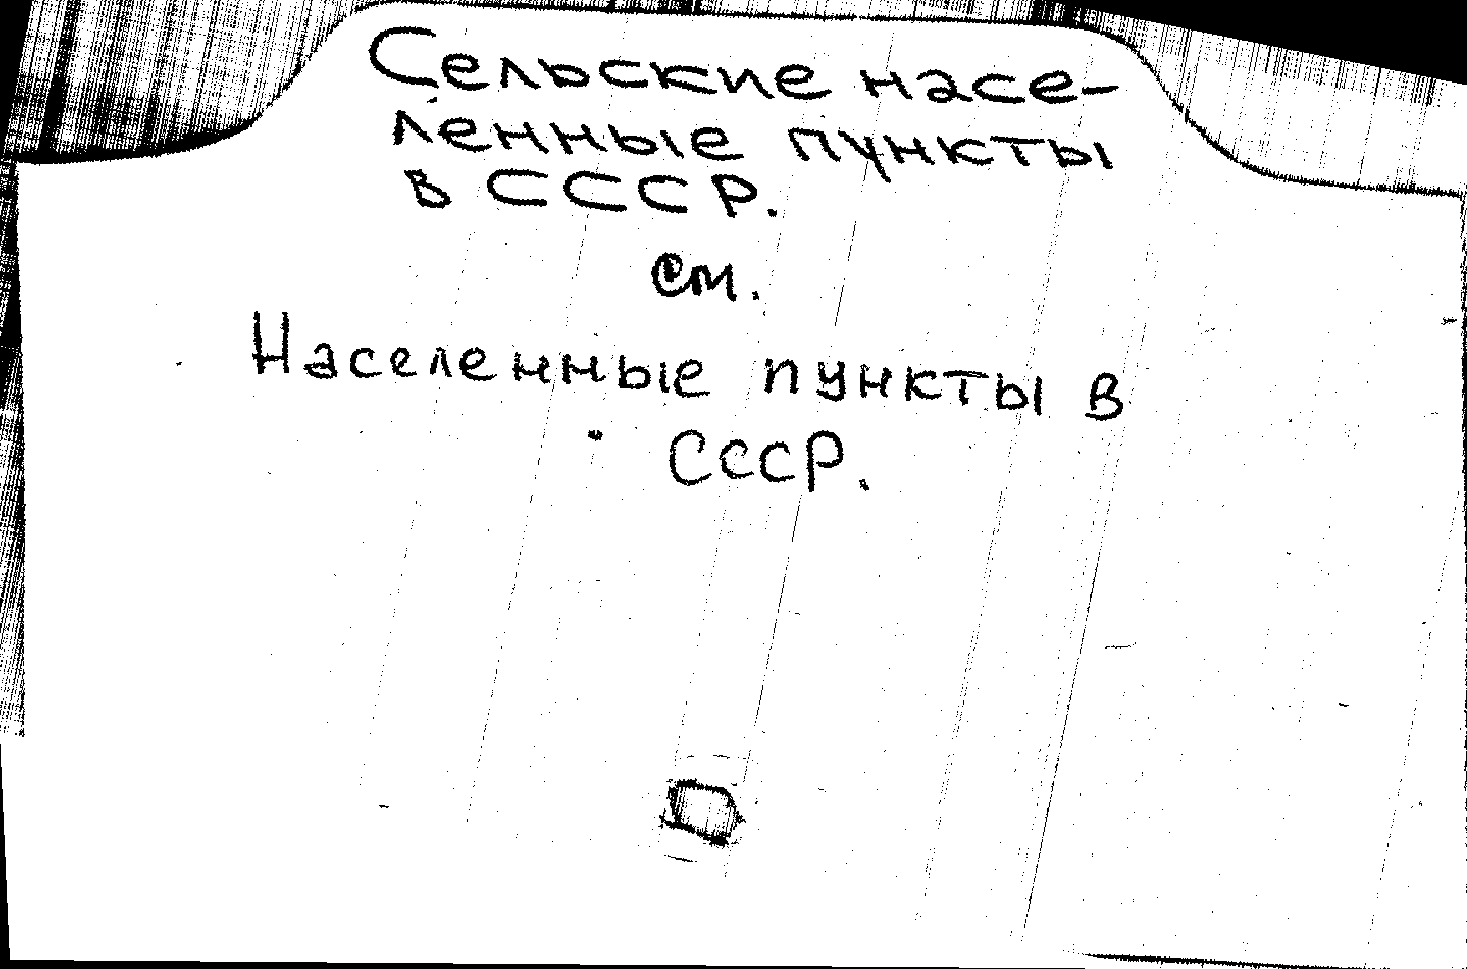 Сельские насе-
ленные пункты
в СССР.
см.
Населенные пункты в
СССР.